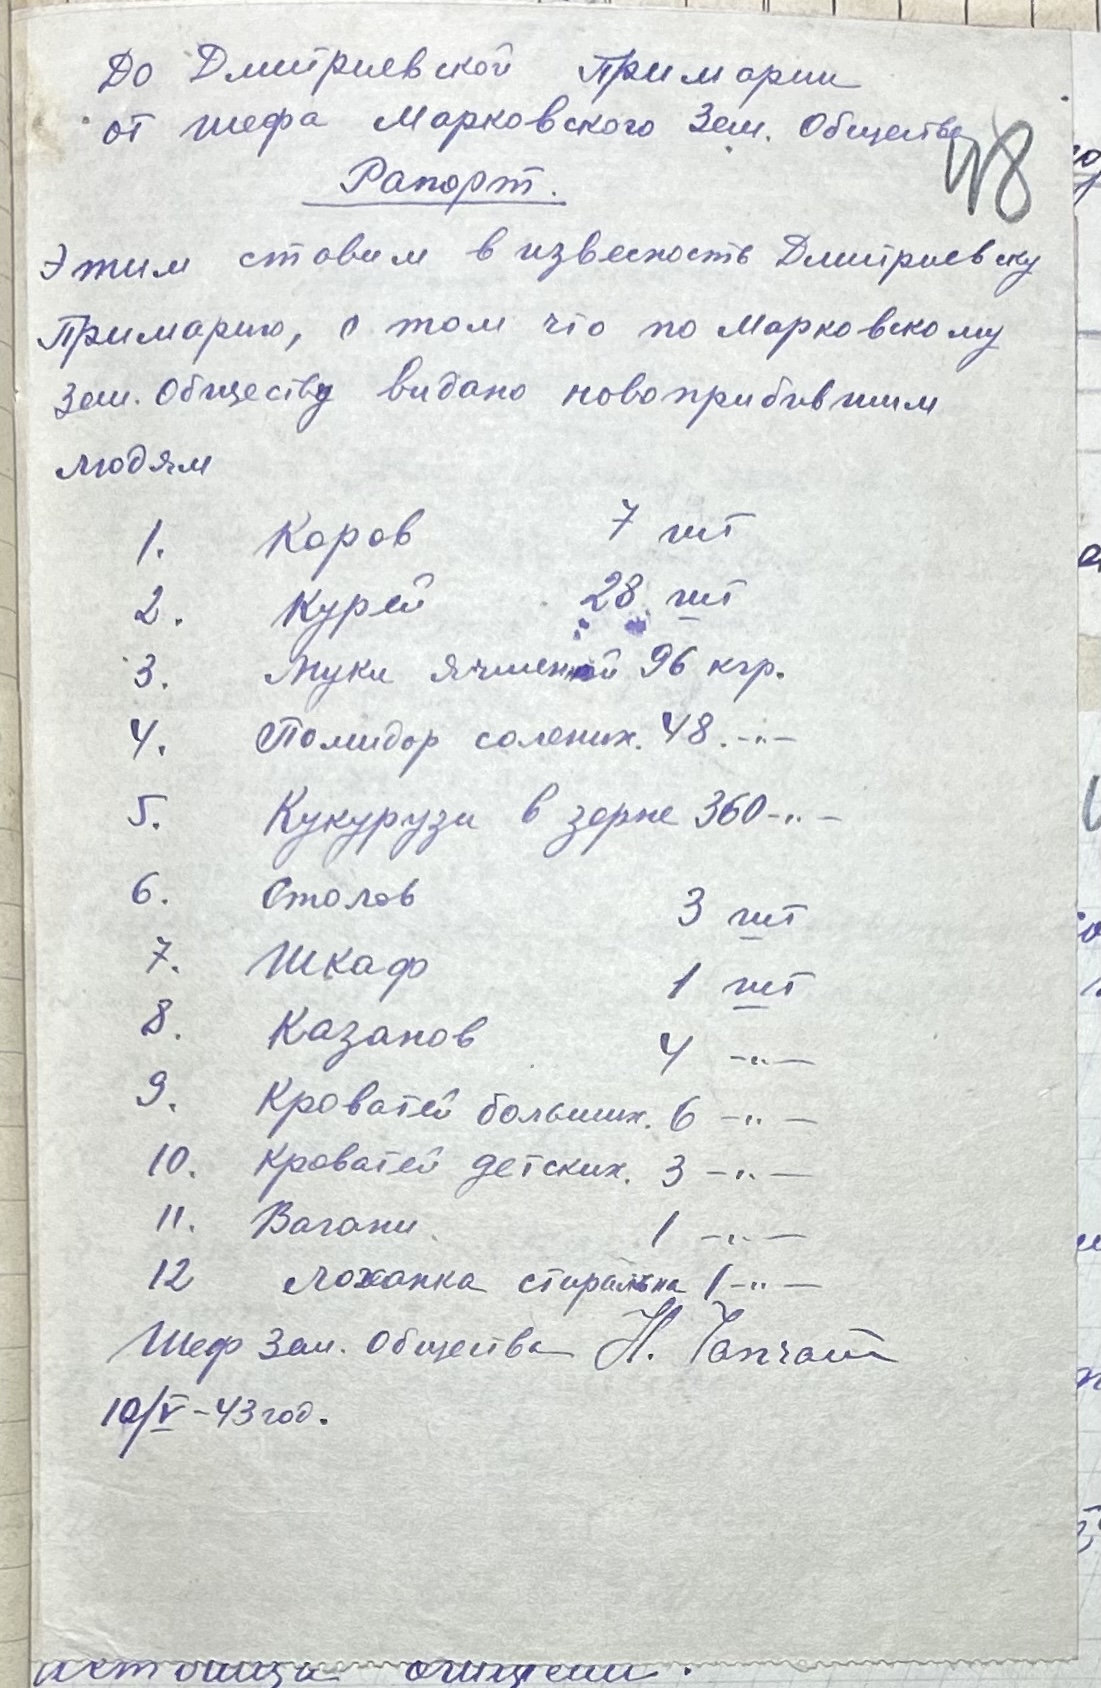 До Дмитриевской Примарии
от шефа Марковского Зем. Общества
48
Рапорт.
Этим ставим в извесность Дмитриевску
Примарию, о том что по Марковскому
Зем. Обществу видано новоприбившим
людям
1. Коров 7 шт
2. Курей 28 шт
3. Муки ячменной 96 кгр.
4. Помидор солених. 48.-"-
5. Кукурузи в зерне 360-"-
6. Столов 3 шт
7. Шкаф 1 шт
8. Казанов 4 -"-
9. Кроватей больших. 6 -"-
10. Кроватей детских. 3 -"-
11. Вагани 1 -"-
12 Лоханка стиральна 1 -"-
Шеф Зем. Общества Н.
10/V-43 год.